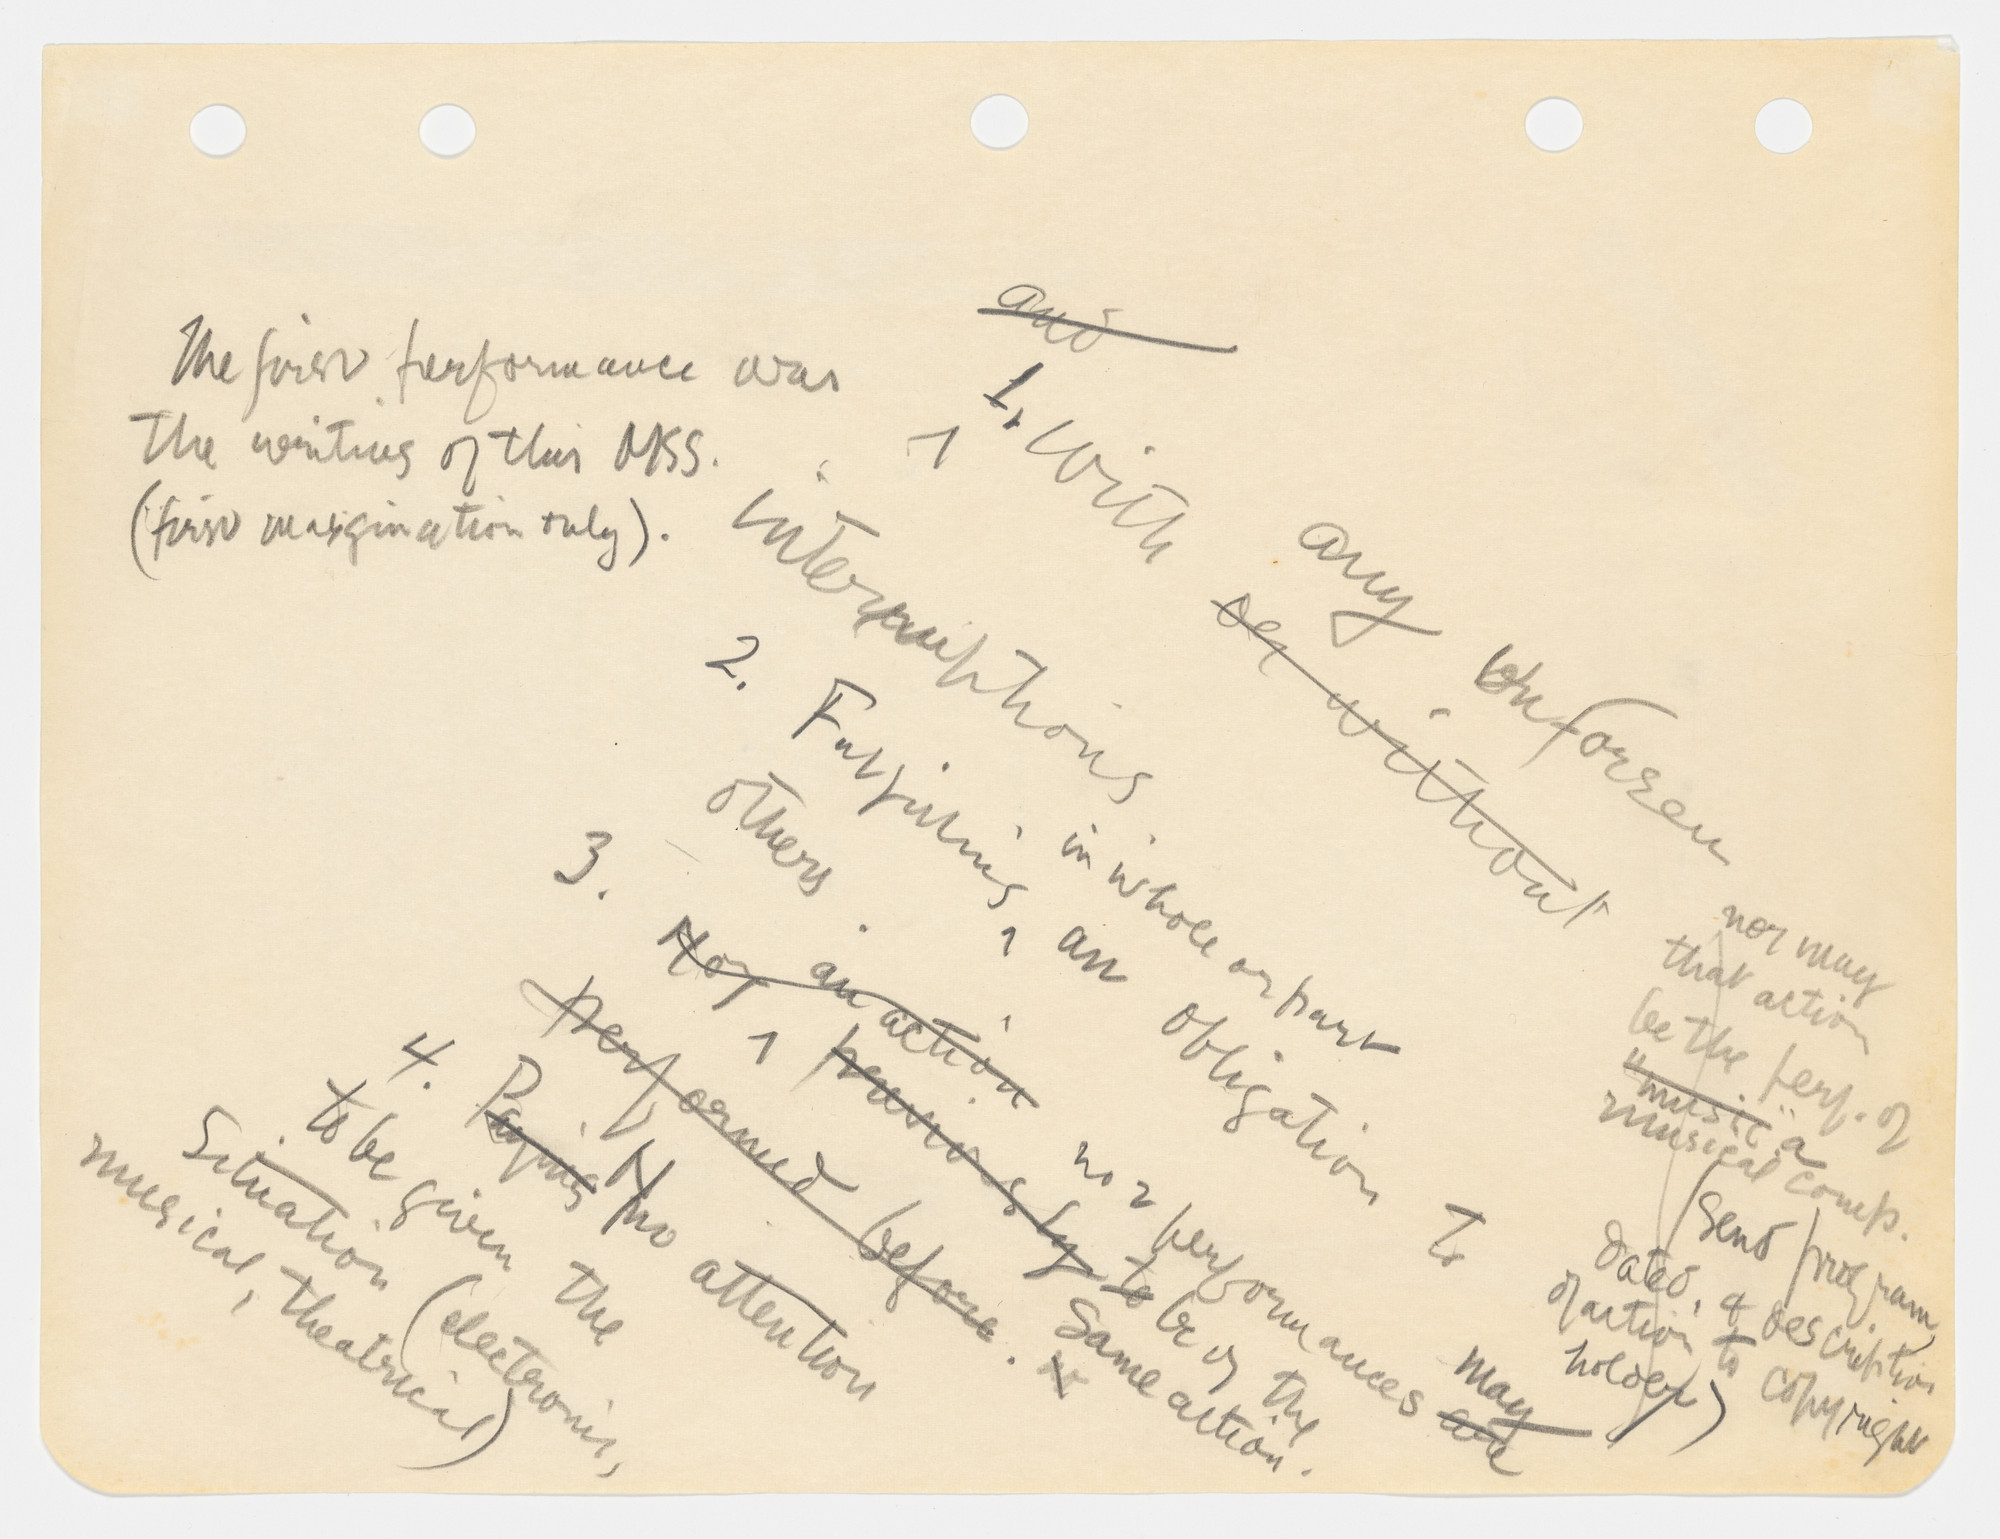 The first performance was
the writing of this MSS.
(first margination only).
and
1. With any unforseen
or without
interruptions
2. Fulfilling in whole or part an obligation to
others.
3. Not an action previously to
performed before.
no 2 performances may are
be of the
same action.
nor may
that action
be the perf. of
"music" a
musical comp.
(send program,
dated, & description
of action to copyright
holder)
4. Paying No no attention
to be given the
situation (electronic,
musical, theatrical)